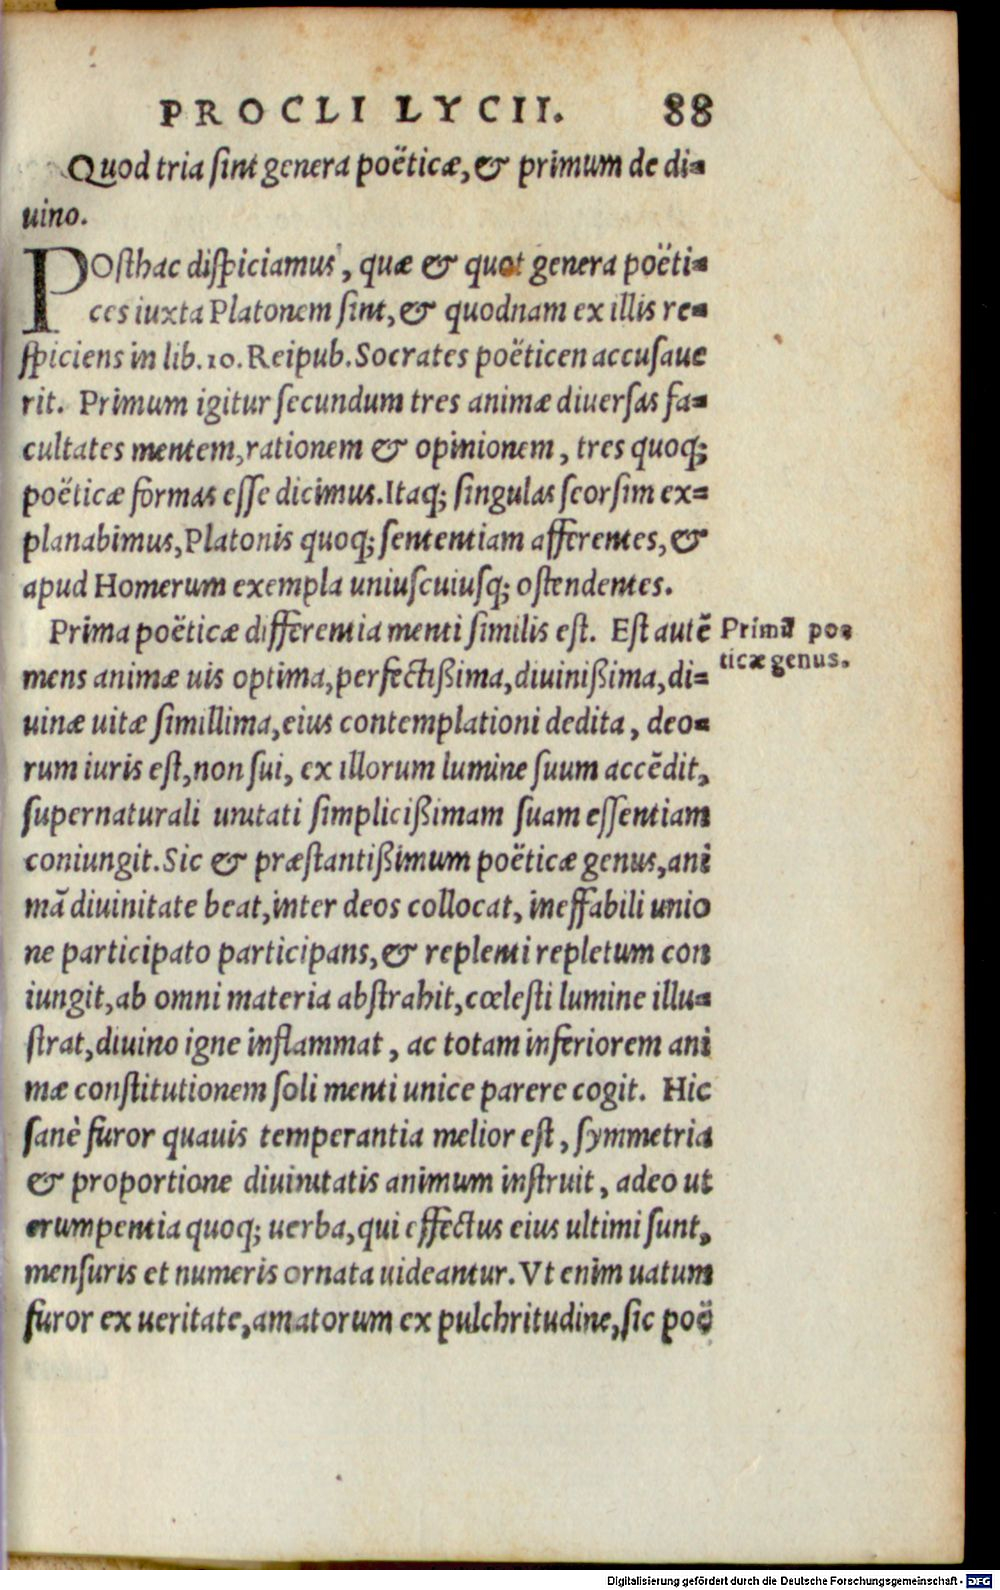 PROCLI LYCII. 88
Quod tria ſint genera poëticæ, & primum de di-
uino.
POſthac diſpiciamus, quæ & quot genera poëti-
ces iuxta Platonem ſint, & quodnam ex illis re-
ſpiciens in lib. 10. Reipub. Socrates poëticen accuſaue
rit. Primum igitur ſecundum tres animæ diuerſas fa-
cultates mentem, rationem & opinionem, tres quoq;
poëticæ formas eſſe dicimus. Itaq; ſingulas ſeorſim ex-
planabimus, Platonis quoq; ſententiam afferentes, &
apud Homerum exempla uniuſcuiuſq; oſtendentes.
Prima poëticæ differentia menti ſimilis eſt. Eſt autē
Primū poe
ticæ genus.
mens animæ uis optima, perfectißima, diuinißima, di-
uinæ uitæ ſimillima, eius contemplationi dedita, deo-
rum iuris eſt, non ſui, ex illorum lumine ſuum accēdit,
ſupernaturali unitati ſimplicißimam ſuam eſſentiam
coniungit. Sic & præſtantißimum poëticæ genus, ani
mā diuinitate beat, inter deos collocat, ineffabili unio
ne participato participans, & replenti repletum con
iungit, ab omni materia abſtrahit, cœleſti lumine illu-
ſtrat, diuino igne inflammat, ac totam inferiorem ani
mæ conſtitutionem ſoli menti unice parere cogit. Hic
ſanè furor quauis temperantia melior eſt, ſymmetria
& proportione diuinitatis animum inſtruit, adeo ut
erumpentia quoq; uerba, qui effectus eius ultimi ſunt,
menſuris et numeris ornata uideantur. Vt enim uatum
furor ex ueritate, amatorum ex pulchritudine, ſic poë
Digitalisierung gefördert durch die Deutsche Forschungsgemeinschaft - DFG